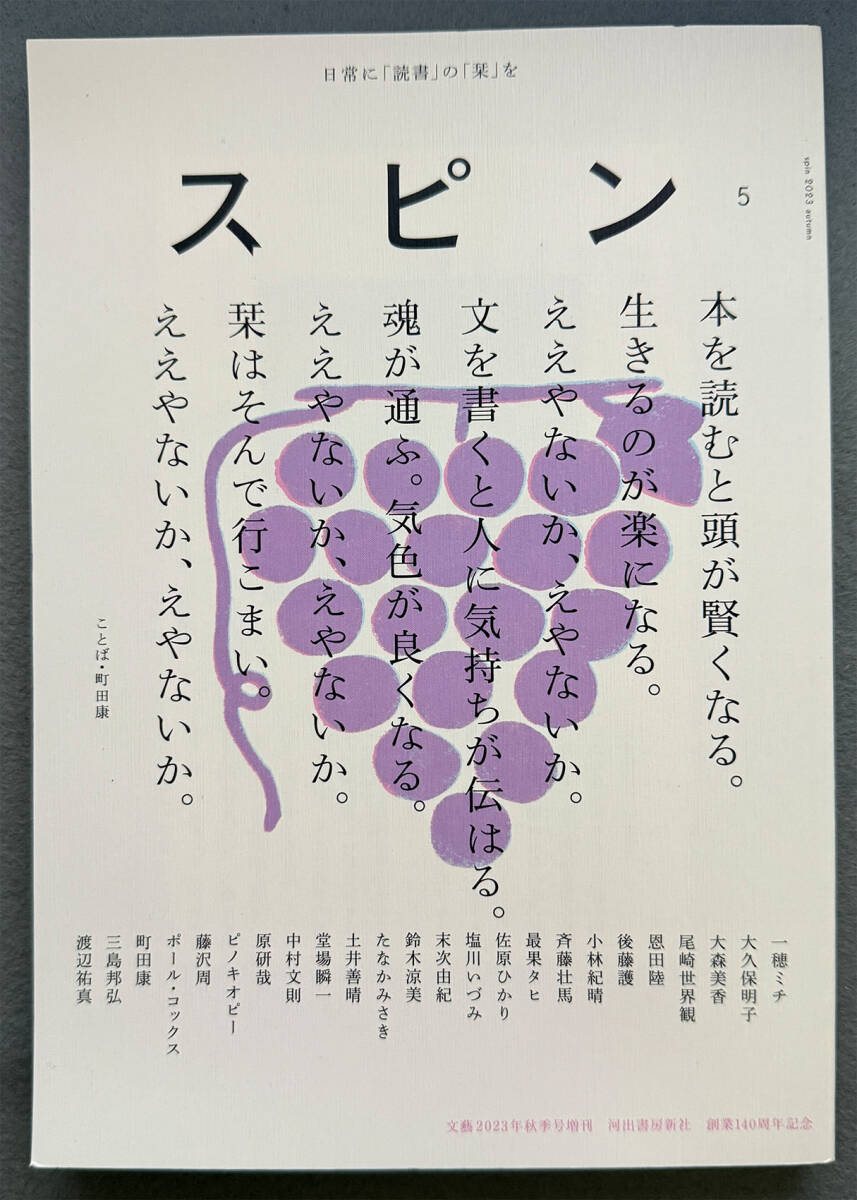 日常に「読書」の「栞」を
スピン
5
spin 2023 autumn
本を読むと頭が賢くなる。
生きるのが楽になる。
ええやないか、えやないか。
文を書くと人に気持ちが伝はる。
魂が通ふ。気色が良くなる。
ええやないか、えやないか。
栞はそんで行こまい。
ええやないか、えやないか。
ことば・町田康
一穂ミチ
大久保明子
大森美香
尾崎世界観
恩田陸
後藤護
小林紀晴
斉藤壮馬
最果タヒ
佐原ひかり
塩川いづみ
末次由紀
鈴木涼美
たなかみさき
土井善晴
堂場瞬一
中村文則
原研哉
ピノキオピー
藤沢周
ポール・コックス
町田康
三島邦弘
渡辺祐真
文藝2023年秋季号増刊 河出書房新社 創業140周年記念